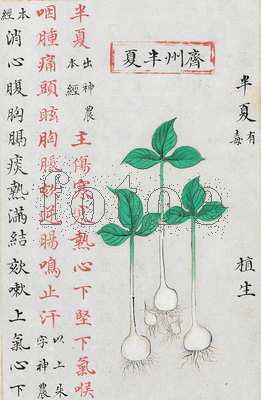 半夏有毒
植生
齊州半夏
半夏出神農本經主傷寒寒熱心下堅下氣喉
咽腫痛頭眩胸脹欬逆腸鳴止汗以上朱字神農
本經消心腹胸膈痰熱滿結欬嗽上氣心下
fotoe